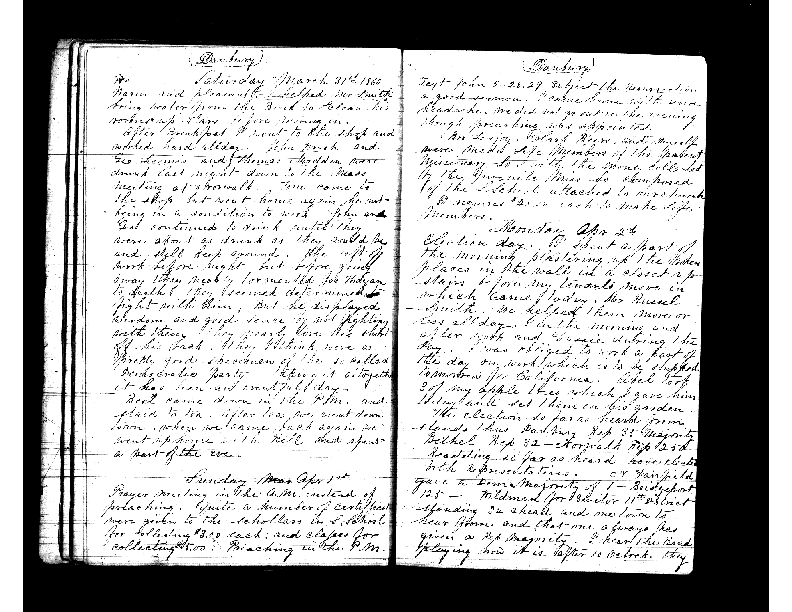 Danbury
Saturday March 31st 1860
Warm and pleasant. Helped Mr Smith
bring water from the Brook to clean his
rooms up stairs before moving in.
After Breakfast I went to the shop and
worked hard all day. John and
Geo Loomis and Thomas were
drunk last night down to the Mass
meeting at Norwalk. Tom came to
the shop but went home again he not
being in a condition to work. John and
continued to drink until they
were about as drunk as they could be
and still keep around. She left off
work before night, but before going
away they nearly tormented Joe
to death. they seemed determined to
fight with him, but he displayed
wisdom and good sense by not fighting
with them. They nearly tore the shirt
off his back. They I think were a
pretty good specimen of the so called
Democratic party. Though it altogether
it has been an eventful day.
Beil came down in the P.M. and
staid to tea. After tea we went down
town. when we came back again we
went up home with Beil and spent
a part of the eve.
Sunday Apr 1st
Prayer meeting in the A.M. instead of
preaching. Quite a number of certificates
were given to the scholars in S. School
for collecting $3.00 each, and classes for
collecting $5.00. Preaching in the P.M.
Danbury
Text John 5-28.29 Subject the resurrection
a good sermon. I came home with
headache. We did not go out in the evening
though preaching was appointed.
and myself
were made Life Members of the parent
Missionary with the money collected
by the Juvenile Miss. soc. composed
of the S. School attached to our church
It requires $20.00 each to make Life
Members.
Monday Apr 2d
Election day. I spent a part of
the morning plastering up the broken
places in the wall in a closet up
stairs before my tenants move in
which came today. Mr Russel
Smith. We helped them more or
less all day. I in the morning and
after work and Gussie during the
day. I was obliged to work a part of
the day on work which is to be shipped
tomorrow for California. took
2 of my apple trees which I gave him
and set them in his garden.
The election so far as heard from
stands thus Danbury Rep 35 Majority
Bethel Rep 32 - Norwalk Rep 250
Redding so far as heard have elected
both representatives. or Fairfield
gave a Majority of 1 - Bridgeport
125 - Wildman for Senator 11th District
is ahead and one town to
hear from and that one always has
given a Rep Majority. I hear the Band
playing now it is after 10 oclock they